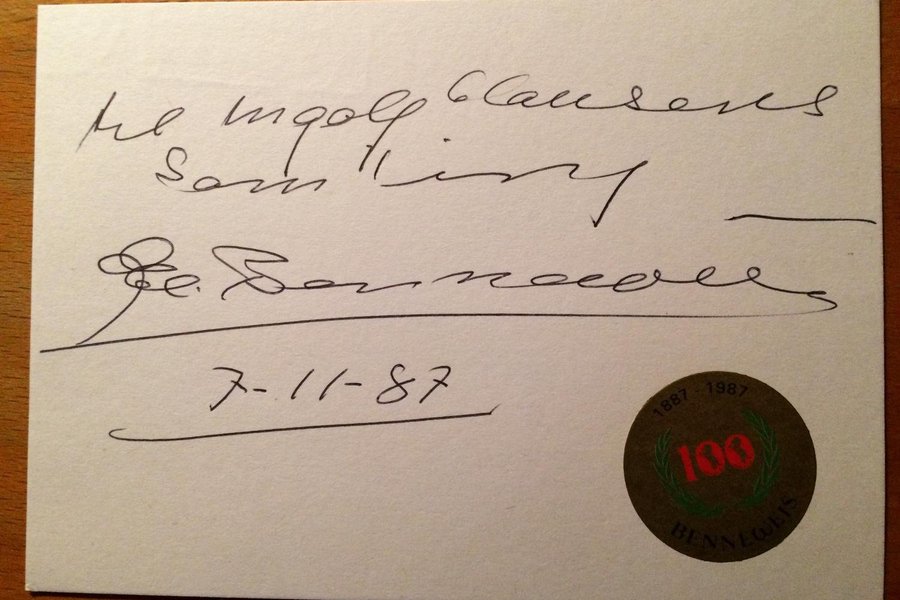 til Ingolf Clausens
Samling
Benneweis
7-11-87
1887-1987
100
BENNEWEIS